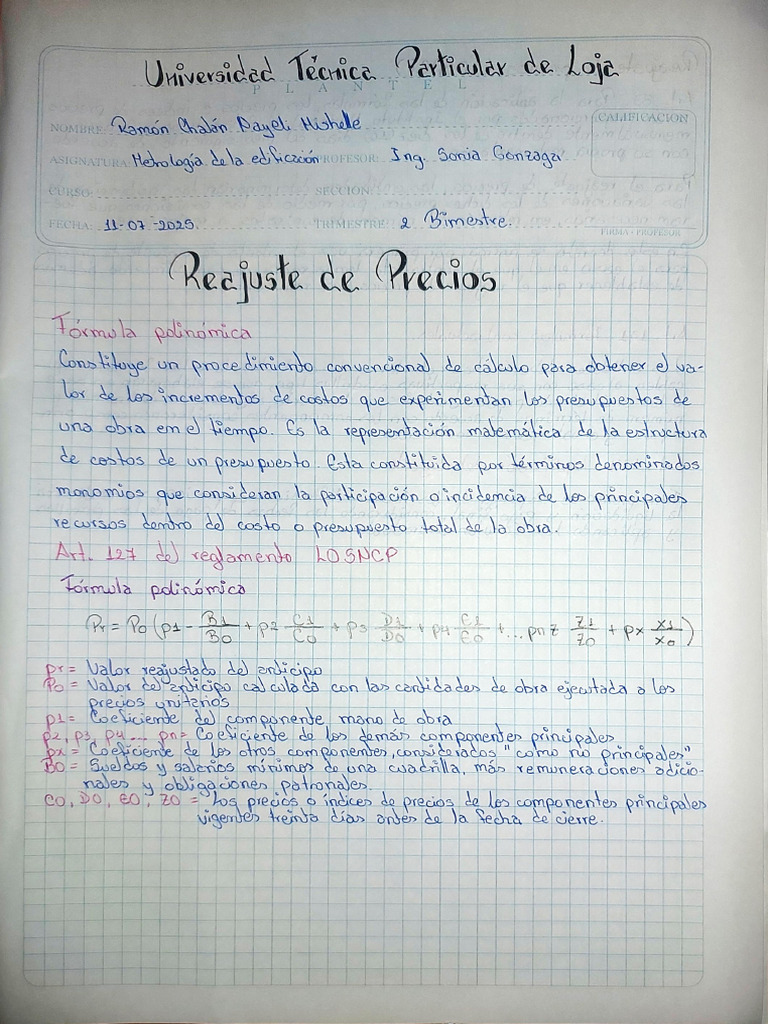 Universidad Técnica Particular de Loja
PLANTEL
NOMBRE: Ramón Chalán Dayeli Mishelle
CALIFICACION
ASIGNATURA: Metrología de la edificación PROFESOR: Ing. Sonia Gonzaga
CURSO: SECCION:
FECHA: 11-07-2025. TRIMESTRE: 2 Bimestre.
FIRMA - PROFESOR
Reajuste de Precios
Fórmula polinómica
Constituye un procedimiento convencional de cálculo para obtener el va-
lor de los incrementos de costos que experimentan los presupuestos de
una obra em el tiempo. Es la representación matemática de la estructura
de costos de un presupuesto. Esta constituida por términos denominados
monomios que consideran la participación o incidencia de los principales
recursos dentro del costo o presupuesto total de la obra.
Art. 127 del reglamento LOSNCP
Fórmula polinómica
Pr = Po (p1 - B1/B0 + p2 C1/C0 + p3 D1/D0 + p4 E1/E0 + ... pnz Z1/Z0 + px X1/X0)
pr = Valor reajustado del anticipo
Po = Valor del anticipo calculado con las cantidades de obra ejecutada a los
precios unitarios
p1 = Coeficiente del componente mano de obra
p2, p3, p4... pn = Coeficiente de los demás componentes principales
px = Coeficiente de los otros componentes, considerados "como no principales"
B0 = Sueldos y salarios mínimos de una cuadrilla, más remuneraciones adicio-
nales y obligaciones patronales.
C0, D0, E0, Z0 = Los precios o índices de precios de los componentes principales
vigentes treinta días antes de la fecha de cierre.